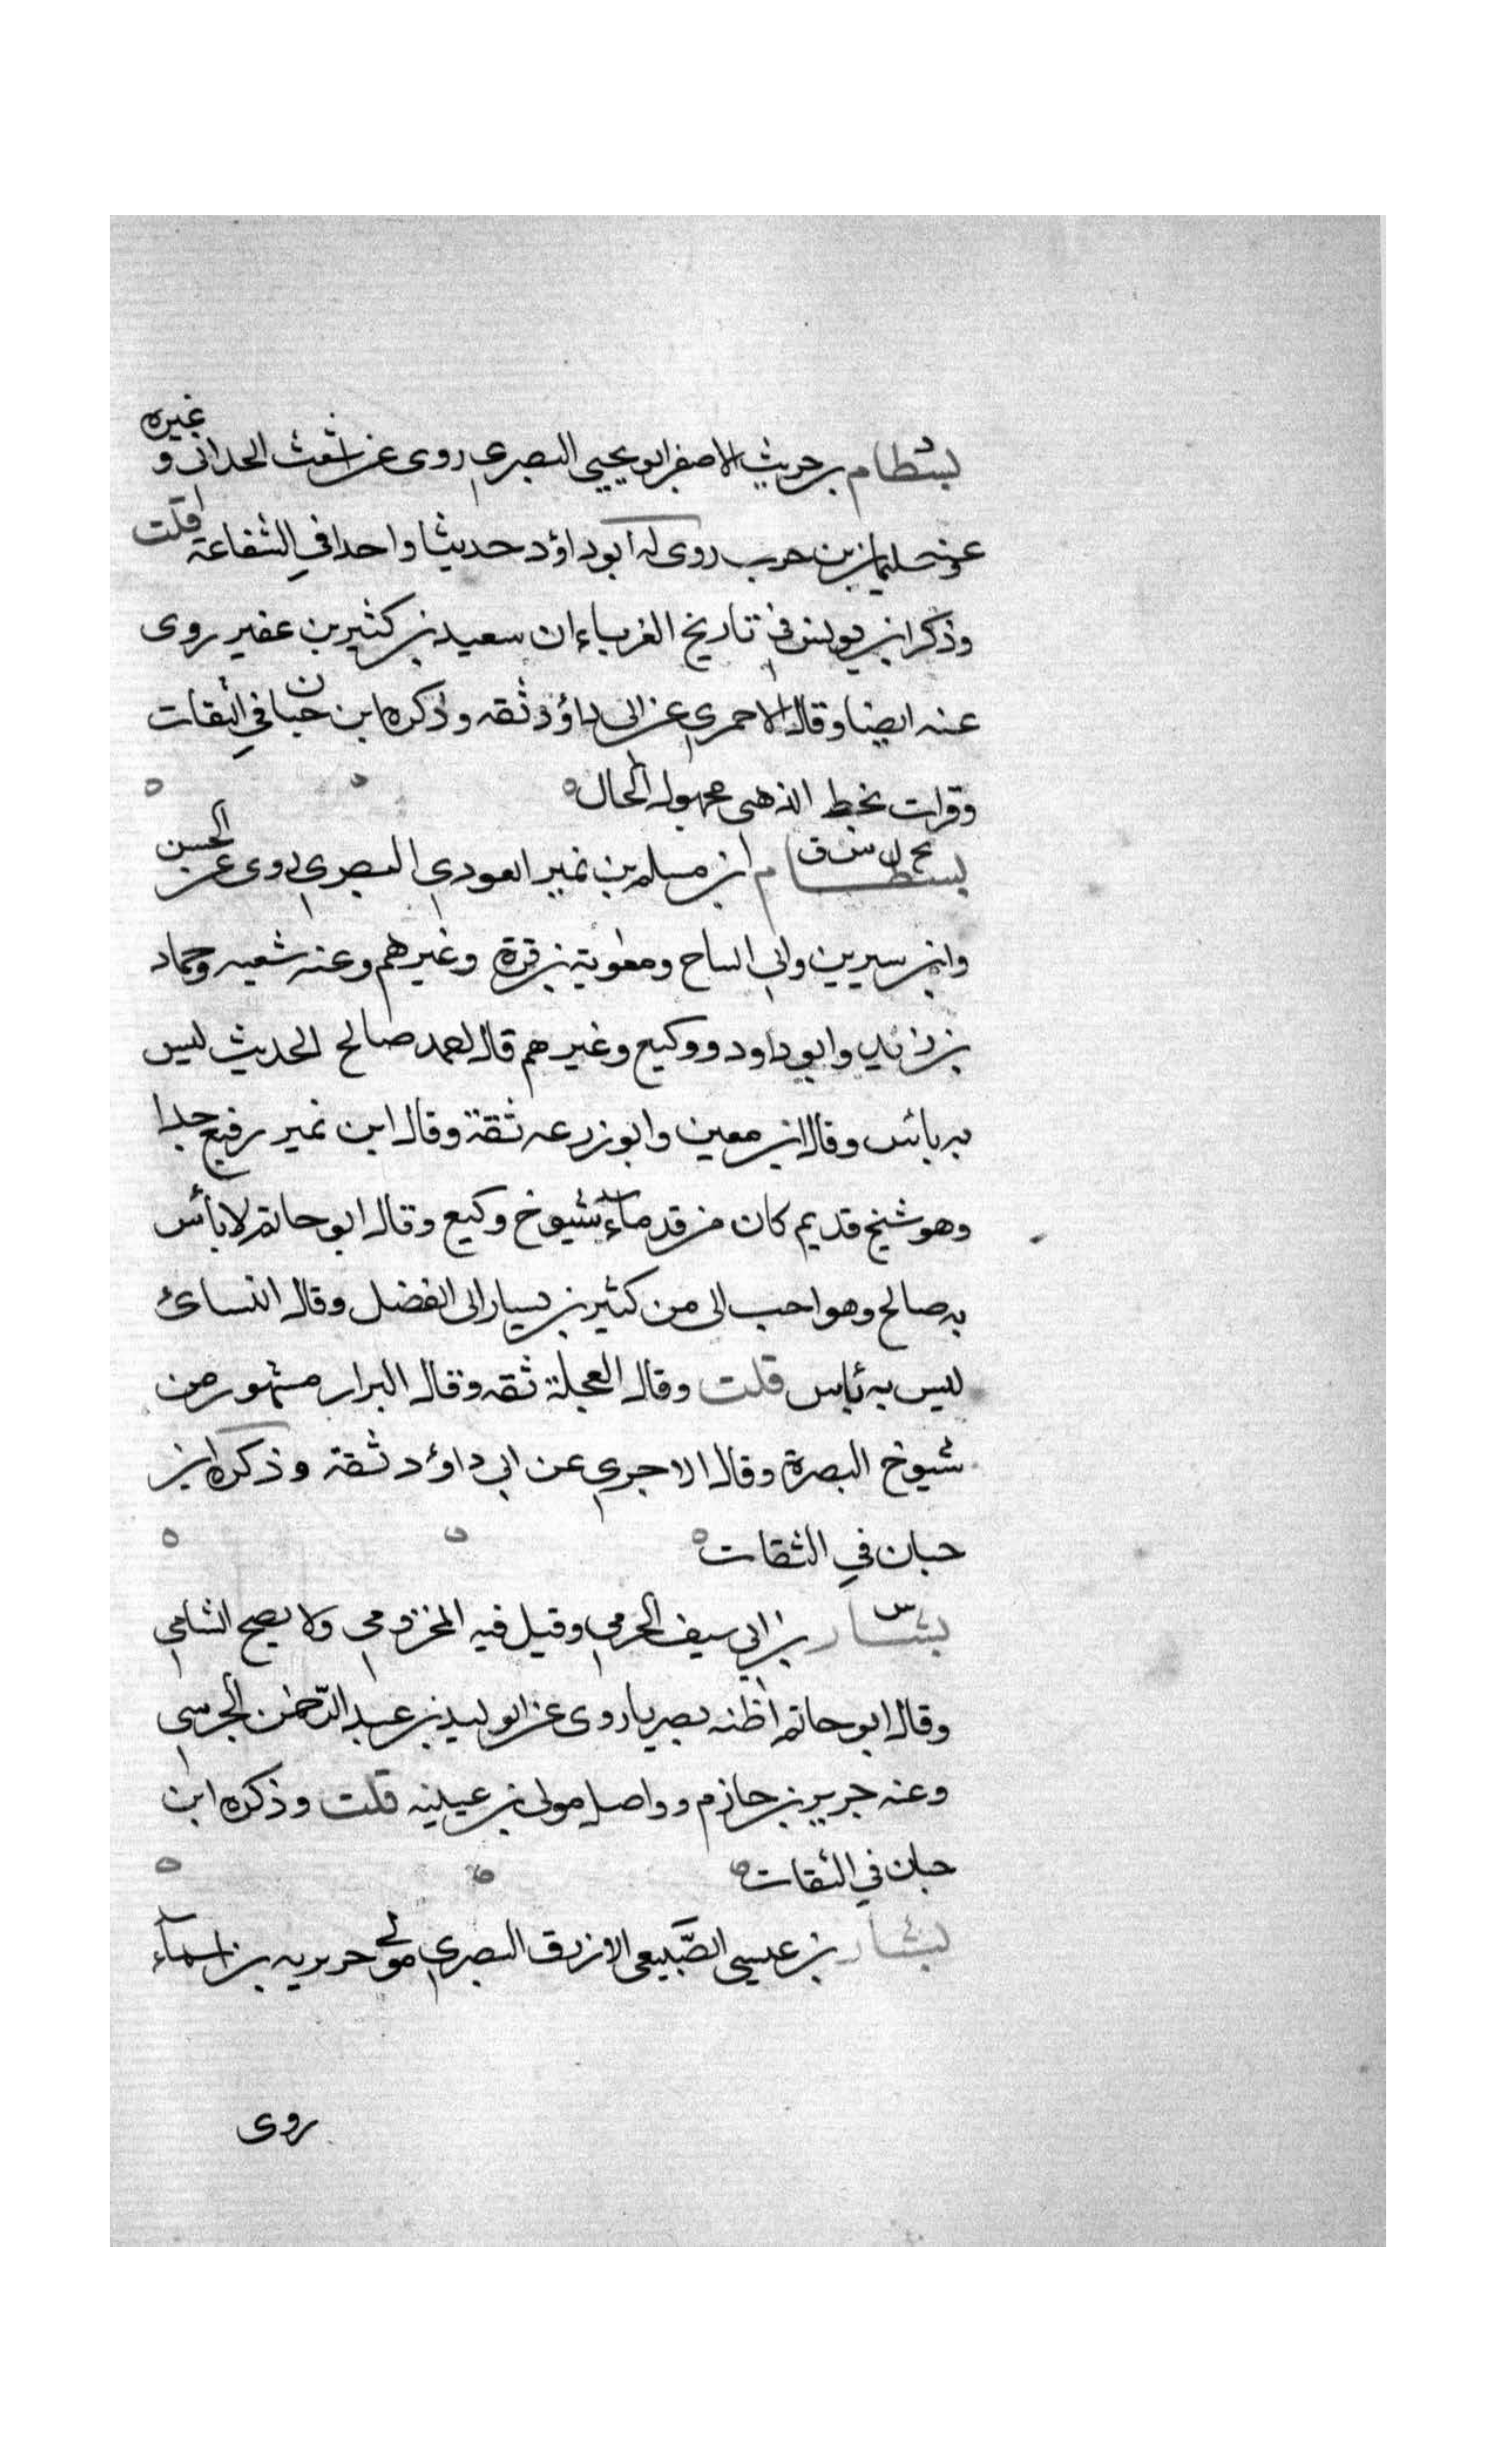 بسطام بن حريث الاصفر ابو يحيى البصري روى عن اشعث الحداني وغيره
وعنه سليمان بن حرب روى له ابو داؤد حديثا واحدا في الشفاعة قلت
وذكر ابن يونس في تاريخ الغرباء ان سعيد بن كثير بن عفير روى
عنه ايضا وقال الاحمري عن ابى داؤد ثقه وذكره ابن حبان في الثقات
وقرات بخط الذهبى مجهول الحال
بسطام ابن مسلم بن نمير العودي البصري روى عن الحسن
وابن سيرين وابي الساح ومعوية بن قرة وغيرهم وعنه شعبه وحماد
بن زيد وابو داود ووكيع وغيرهم قال احمد صالح الحديث ليس
به بائس وقال ابن معين وابو زرعه ثقة وقال ابن نمير رفيع جدا
وهو شيخ قديم كان من قدماء شيوخ وكيع وقال ابو حاتم لا بأس
به صالح وهو احب الى من كثير بن يسار ابى الفضل وقال النسائ
ليس به بائس قلت وقال العجلة ثقه وقال البرار مشهور من
شيوخ البصرة وقال الاجري عن ابي داؤد ثقة وذكره ابن
حبان في الثقات
س
بشار بن ابي سيف الحرمي وقيل فيه المخزومي ولا يصح الشامي
وقال ابو حاتم اظنه بصريا روى عن الوليد بن عبد الرحمن الجرسي
وعنه جرير بن حازم وواصل مولى بن عيينه قلت وذكره ابن
حبان في الثقات
بشار بن عيسى الضبيعى الازرق البصري مولى حريريه بن اسماء
روى